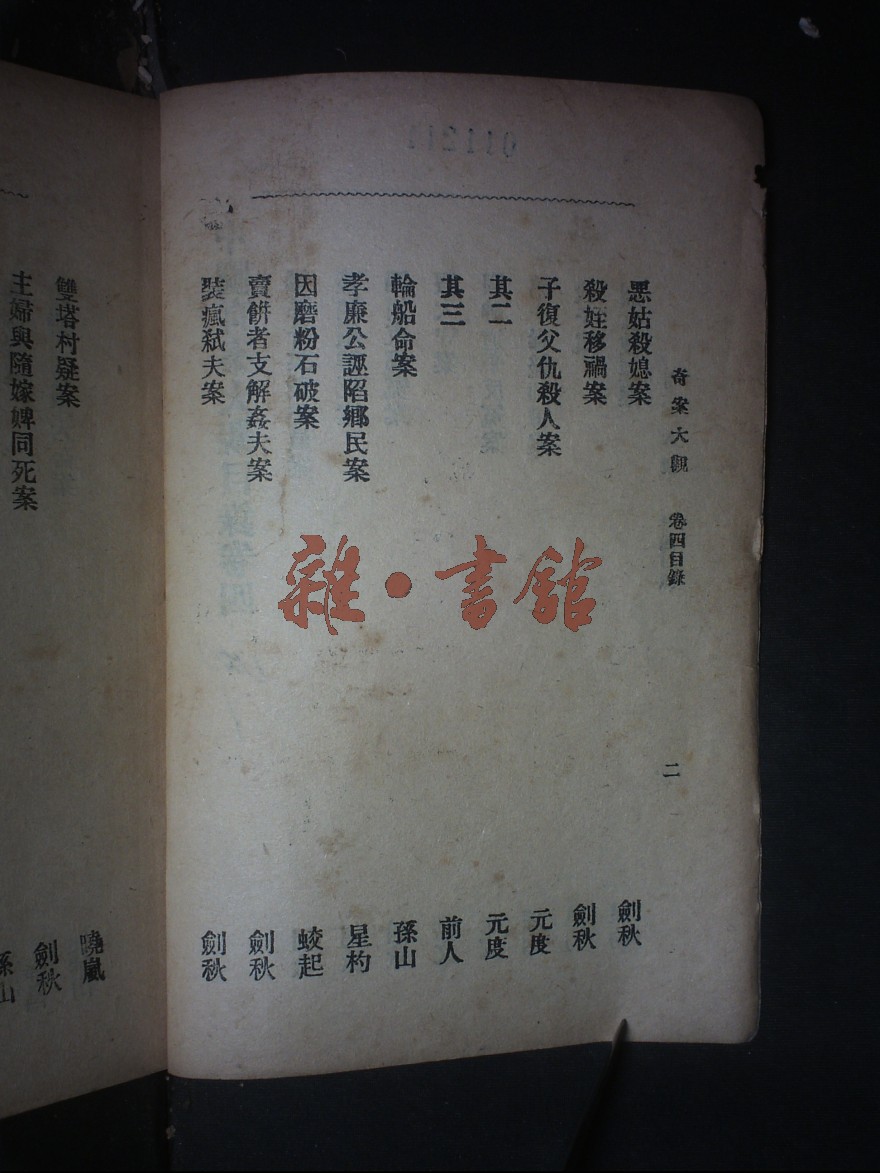 奇案大觀 卷四目錄 二
惡姑殺媳案 劍秋
殺姪移禍案 劍秋
子復父仇殺人案 元度
其二 元度
其三 前人
輪船命案 孫山
孝廉公誣陷鄉民案 星杓
因磨粉石破案 蛟起
賣餅者支解姦夫案 劍秋
裝瘋弒夫案 劍秋
曉嵐
雙塔村疑案 劍秋
主婦與隨嫁婢同死案 孫山
雜·書館